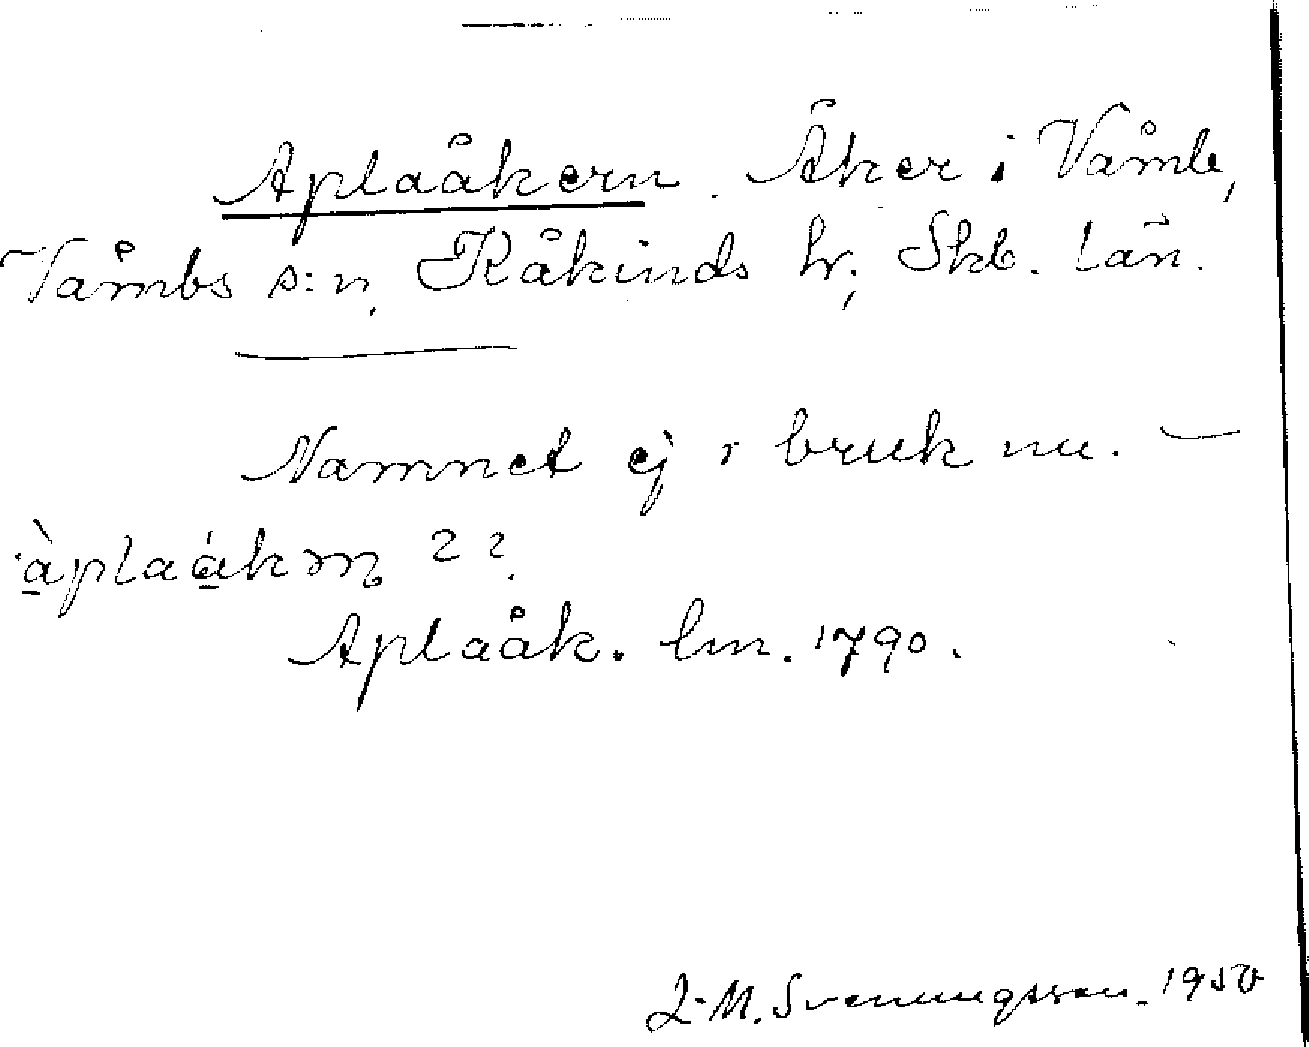 Aplaåkern. Åker i Våmb,
Våmbs s:n, Kåkinds hr, Skb. län.
Namnet ej i bruk nu. —
àplaåkɷn ??
Aplaåk. lm. 1790.
L-M. Svenungsson. 1950